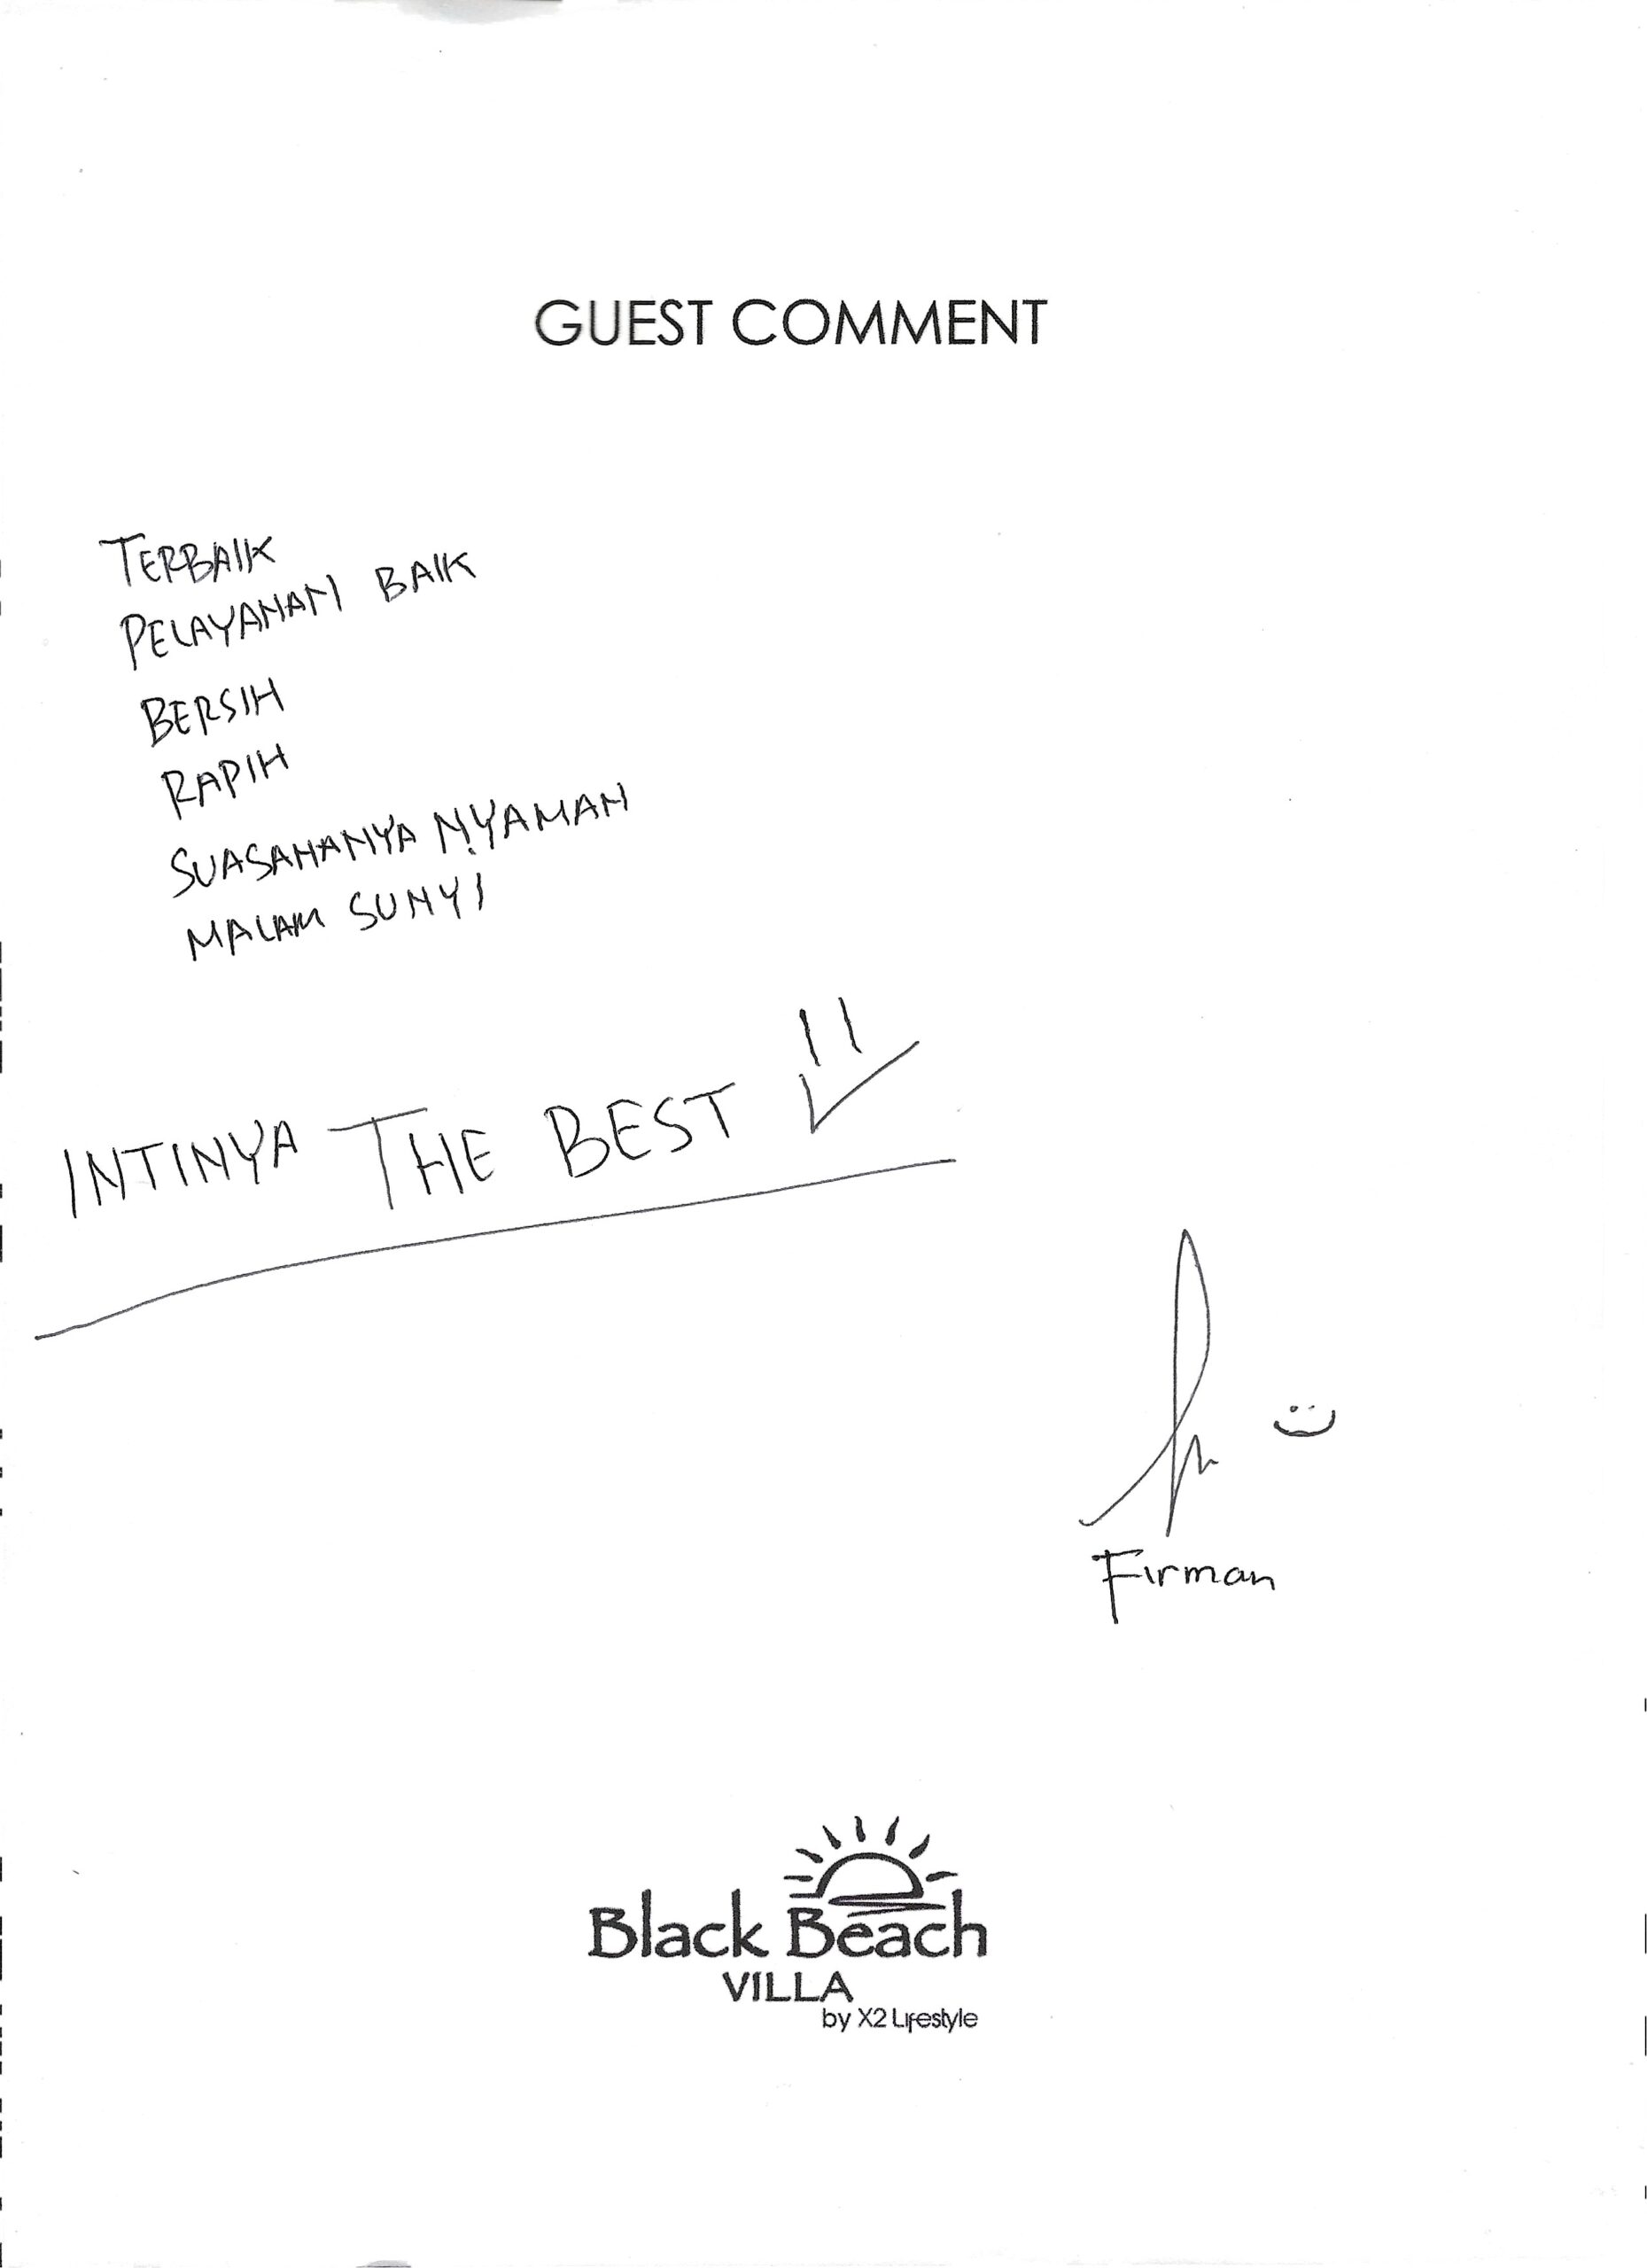 GUEST COMMENT
TERBAIK
PELAYANAN BAIK
BERSIH
RAPIH
SUASANANYA NYAMAN
MALAM SUNYI
INTINYA THE BEST
Firman
Black Beach
VILLA
by X2 Lifestyle